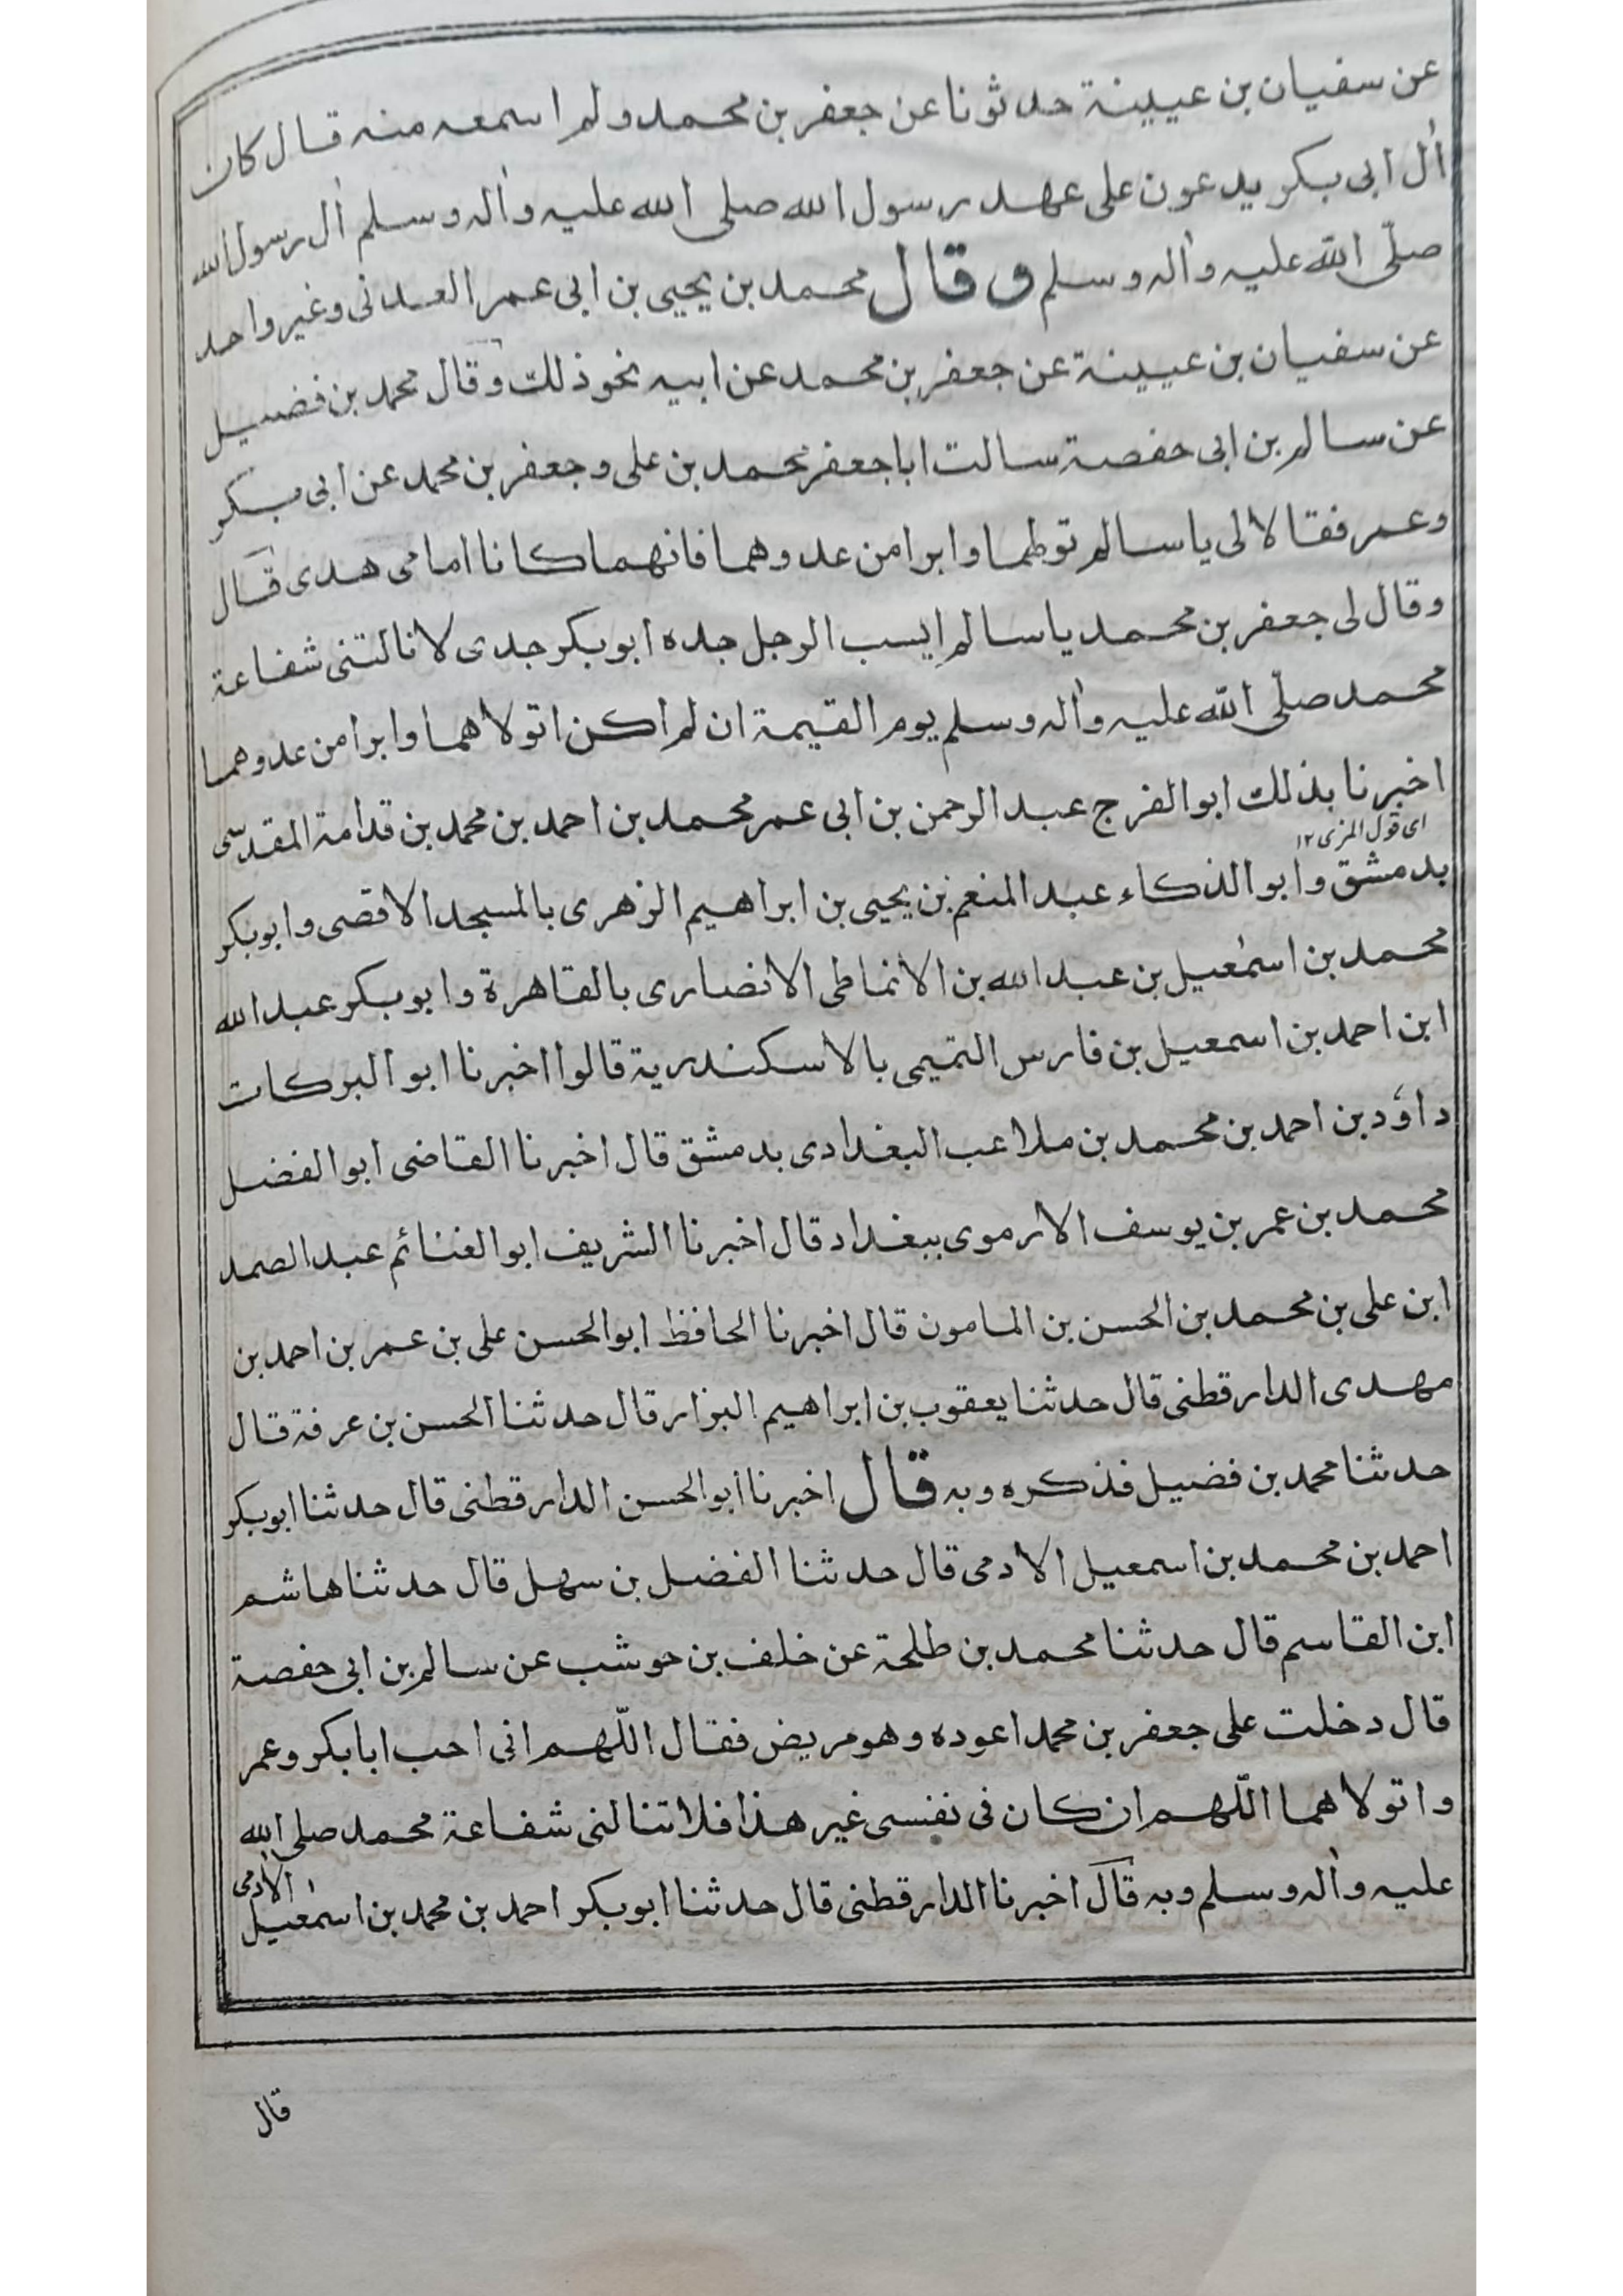 عن سفيان بن عيينة حدثونا عن جعفر بن محمد ولم اسمعه منه قال كان
اٰل ابى بكر يدعون على عهد رسول الله صلى الله عليه واٰله وسلم اٰل رسول الله
صلّى الله عليه واٰله وسلم وقال محمد بن يحيى بن ابى عمر العدنى وغير واحد
عن سفيان بن عيينة عن جعفر بن محمد عن ابيه نحو ذلك وقال محمد بن فضيل
عن سالم بن ابى حفصة سالت ابا جعفر محمد بن على وجعفر بن محمد عن ابى بكر
وعمر فقالا لى يا سالم تولهما وابرا من عدوهما فانهما كانا امامى هدى قال
وقال لى جعفر بن محمد يا سالم ايسب الرجل جده ابوبكر جدى لا نالتنى شفاعة
محمد صلّى الله عليه واٰله وسلم يوم القيمة ان لم اكن اتولاهما وابرا من عدوهما
اخبرنا بذلك ابو الفرج عبد الرحمن بن ابى عمر محمد بن احمد بن محمد بن قدامة المقدسى
اى قول المزى ١٢
بدمشق وابو الذكاء عبد المنعم بن يحيى بن ابراهيم الزهرى بالمسجد الاقصى وابوبكر
محمد بن اسمٰعيل بن عبد الله بن الانماطى الانصارى بالقاهرة وابوبكر عبد الله
ابن احمد بن اسمعيل بن فارس التميمى بالاسكندرية قالوا اخبرنا ابو البركات
داؤد بن احمد بن محمد بن ملاعب البغدادى بدمشق قال اخبرنا القاضى ابو الفضل
محمد بن عمر بن يوسف الارموى ببغداد قال اخبرنا الشريف ابو الغنائم عبد الصمد
ابن على بن محمد بن الحسن بن المامون قال اخبرنا الحافظ ابوالحسن على بن عمر بن احمد بن
مهدى الدارقطنى قال حدثنا يعقوب بن ابراهيم البزار قال حدثنا الحسن بن عرفة قال
حدثنا محمد بن فضيل فذكره وبه قال اخبرنا ابوالحسن الدارقطنى قال حدثنا ابوبكر
احمد بن محمد بن اسمعيل الادمى قال حدثنا الفضل بن سهل قال حدثنا هاشم
ابن القاسم قال حدثنا محمد بن طلحة عن خلف بن حوشب عن سالم بن ابى حفصة
قال دخلت على جعفر بن محمد اعوده وهو مريض فقال اللّهم انى احب ابا بكر وعمر
واتولاهما اللّهم ان كان فى نفسى غير هذا فلا تنالنى شفاعة محمد صلى الله
عليه واٰله وسلم وبه قال اخبرنا الدارقطنى قال حدثنا ابوبكر احمد بن محمد بن اسمٰعيل الاٰدمى
قال